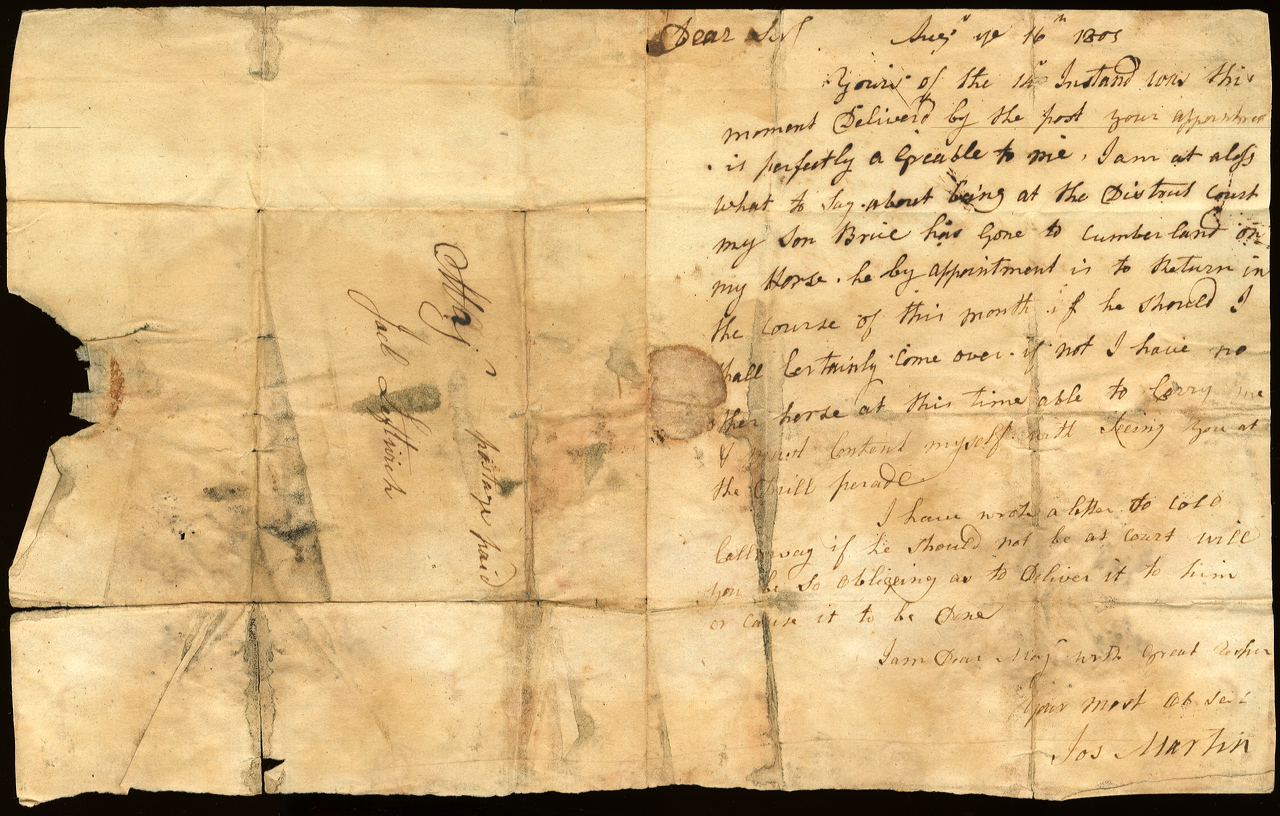 Dear Sir Augt ye 16th 1805
Yours of the 14th Instand was this
moment Deliverd by the post your appointmen
is perfectly a Greable to me. I am at aloss
what to say about being at the District Court
my son Brice has Gone to Cumberland on
my Horse. he by appointment is to Return in
the Course of this month if he should I
shall Certainly Come over. if not I have no
other horse at this time able to Carry me
I must Content myself with seeing you at
the Drill perade
I have wrote a letter to Colo
Calloway if he should not be at Court will
you be so obligeing as to Deliver it to him
or cause it to be Done
I am Dear Majr with Great Respec
Your most ob se
Jos Martin
Majr
Jack Leftwich
postage paid